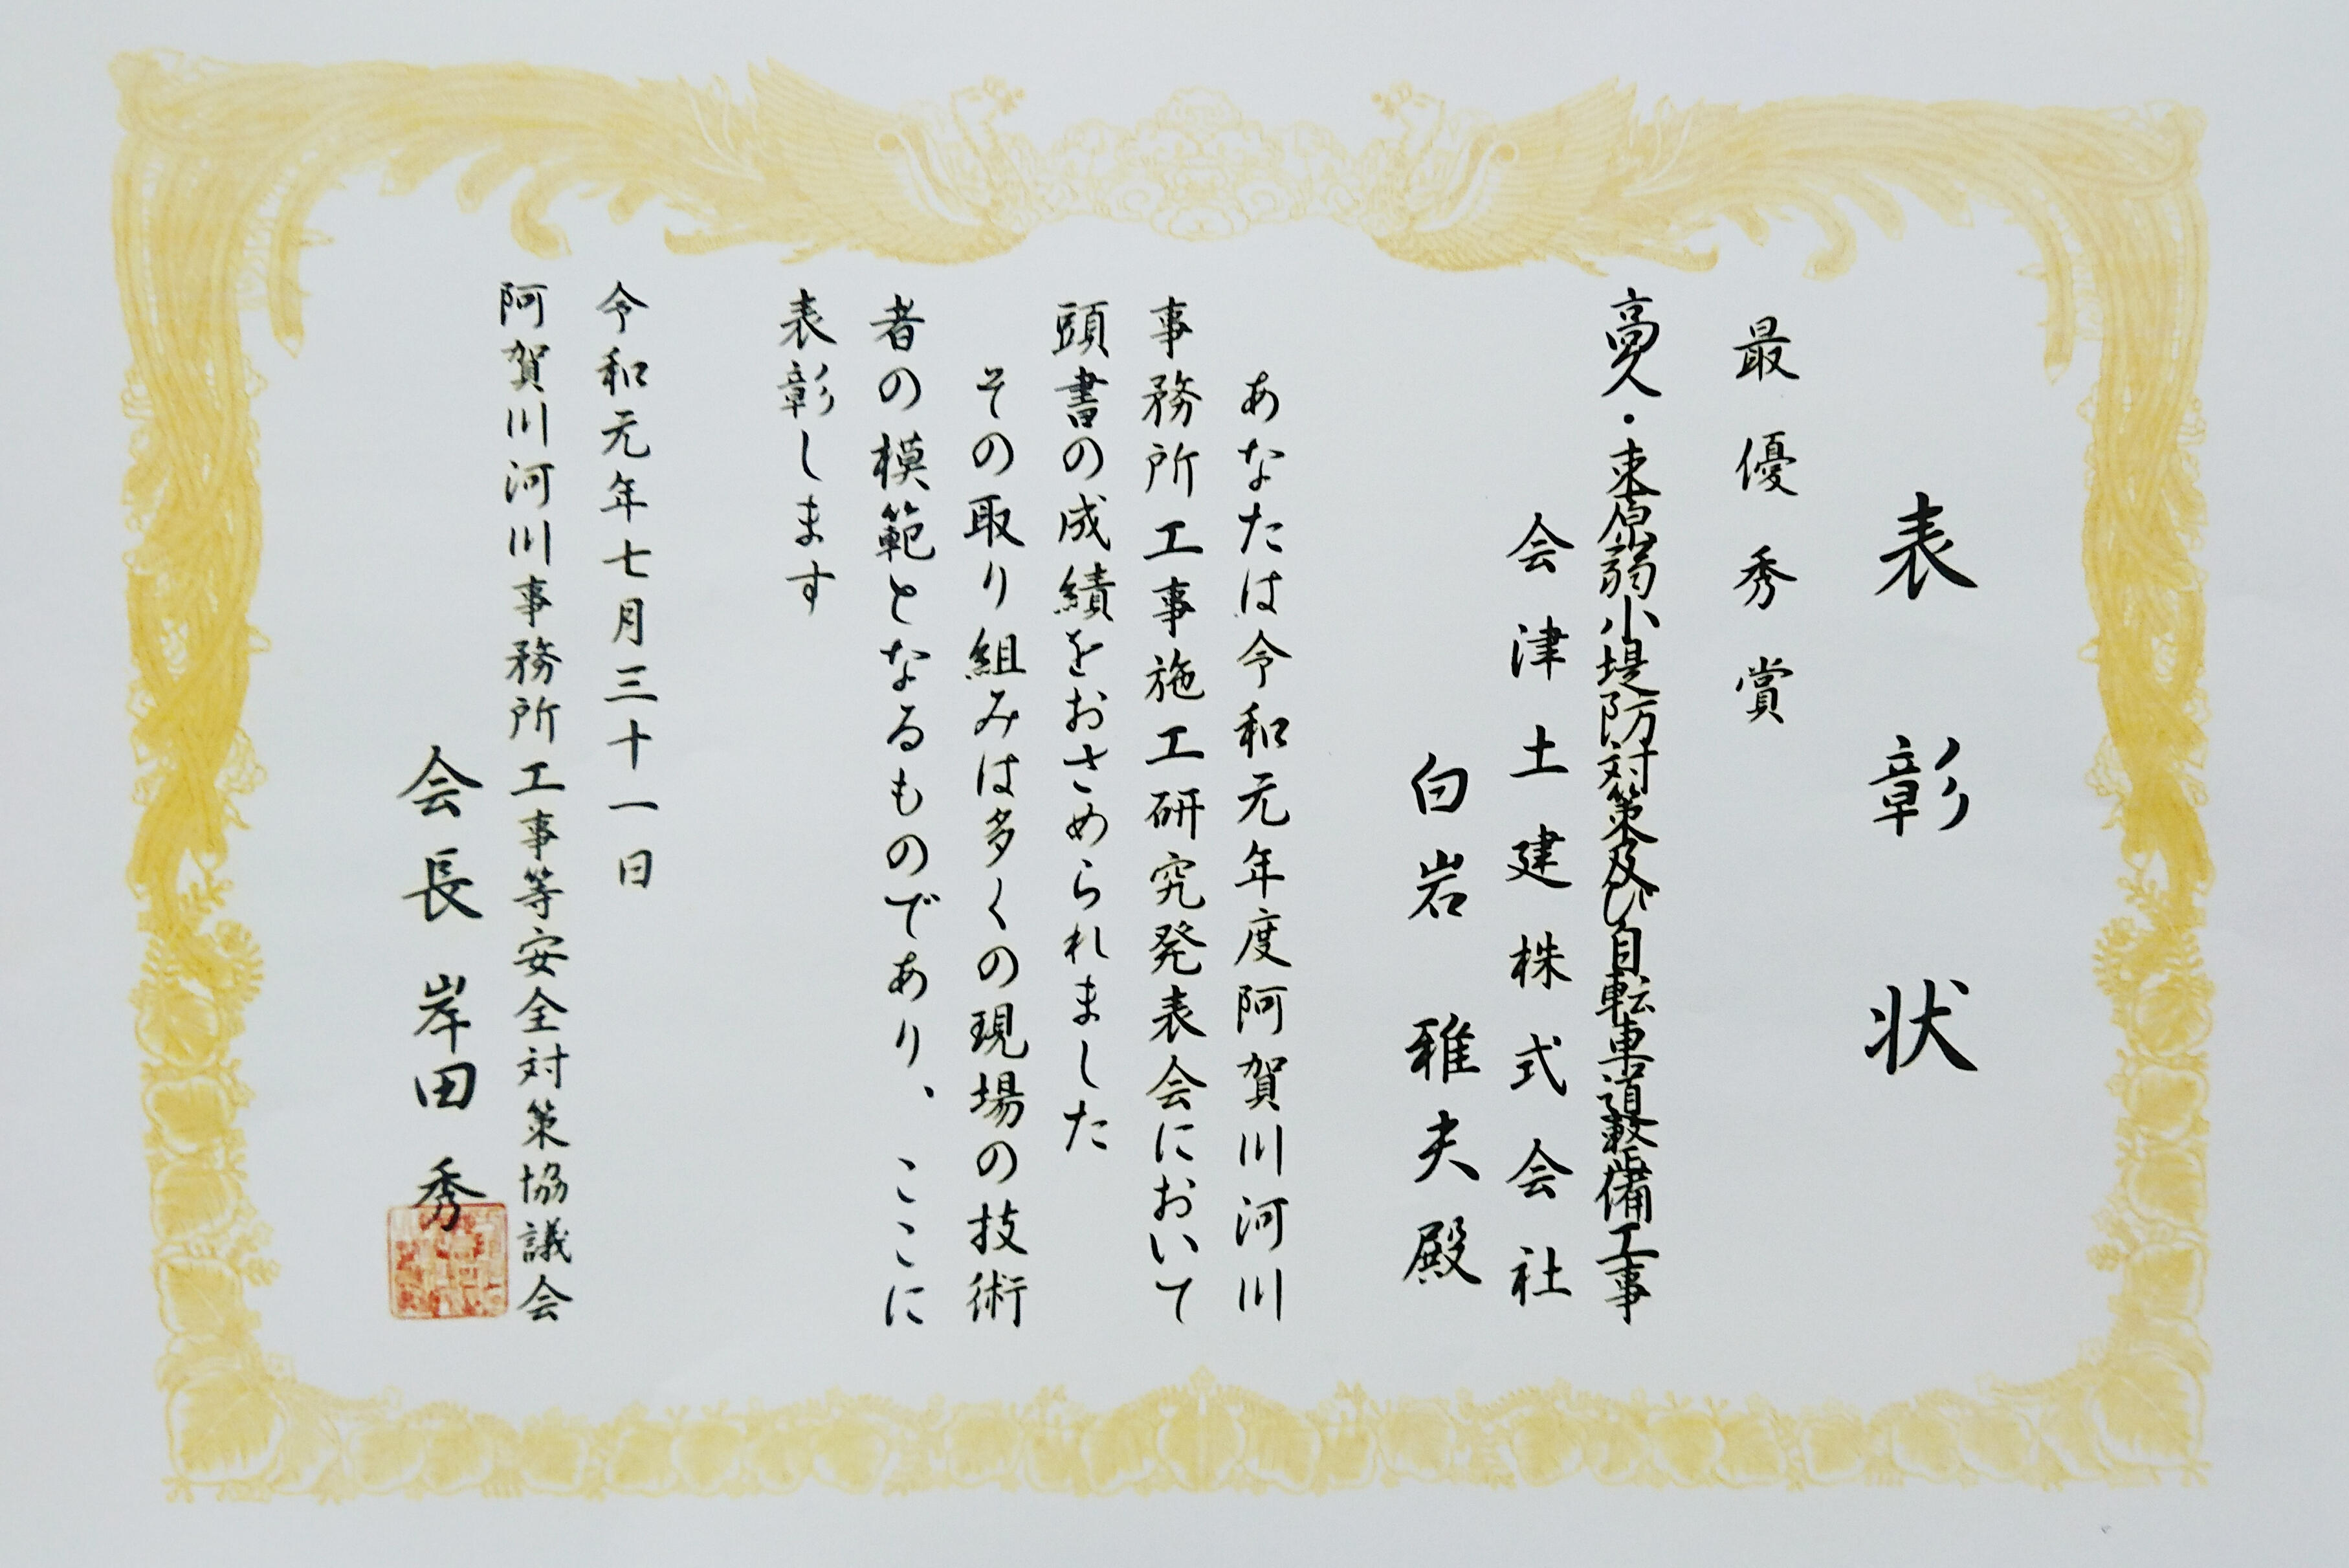 表彰状
最優秀賞
高久・東原弱小堤防対策及び自転車道整備工事
会津土建株式会社
白岩雅夫殿
あなたは令和元年度阿賀川河川
事務所工事施工研究発表会において
頭書の成績をおさめられました
その取り組みは多くの現場の技術
者の模範となるものであり、ここに
表彰します
令和元年七月三十一日
阿賀川河川事務所工事等安全対策協議会
会長 岸田秀